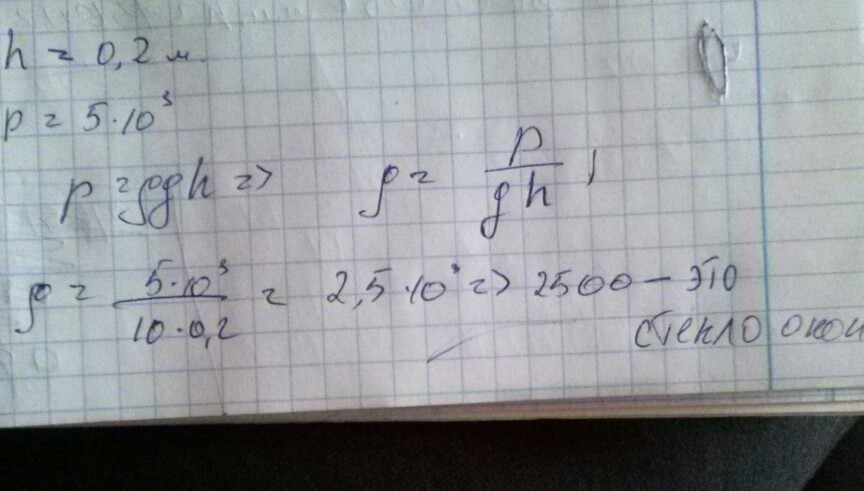 h = 0,2 м.
p = 5·10³
p = ρgh => ρ = p/gh ;
ρ = 5·10³/10·0,2 = 2,5·10³ => 2500 – это
стекло окон